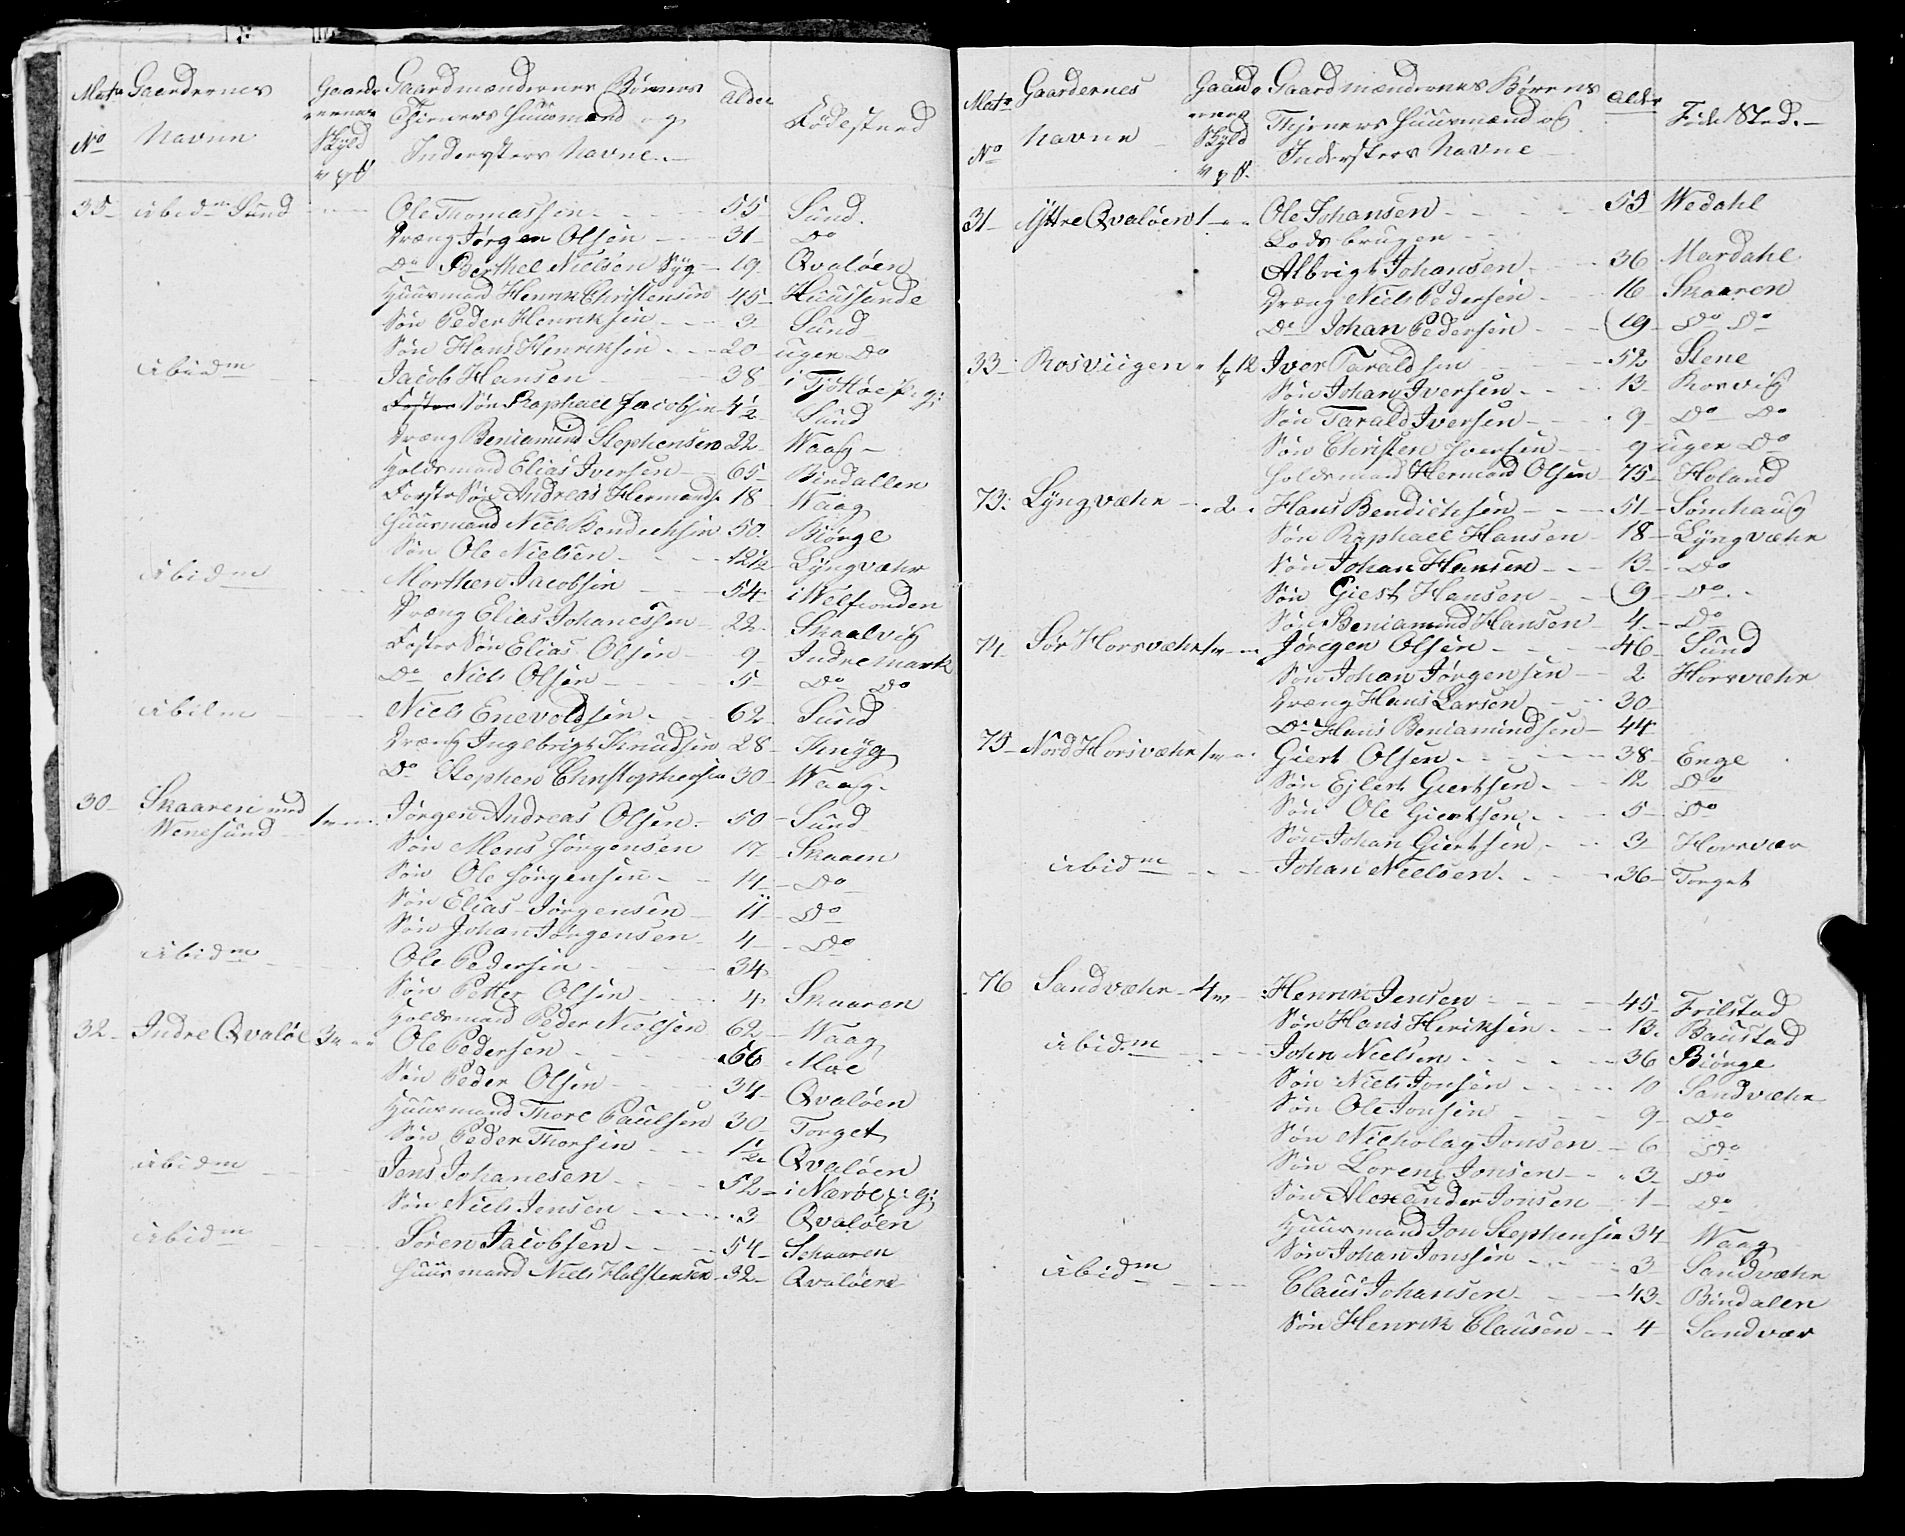 Matr Gaardernes Gaarder Gaardmændernes Børnes Alder
No Navne ernes Skyld Tieners Huusmænd og Fødesteed
v p ℔ Inderster Navne
35 ibidm Sund Ole Thomassen 55 Sund
Dræng Jørgen Olsen 31 Do
Do Berthel Nielsen Syg 19 Qvaløen
Huusmand Henrik Christensen 45 Huussunde
Søn Peder Henriksen 3 Sund
Søn Hans Henriksen 20 uger Do
ibidm Jacob Hansen 38 i Tjøttøe P: gi
Søn Raphael Jacobsen 4½ Sund
Dræng Beniamind Stephensen 22 Waag
Holdsmand Elias Iversen 65 Bindallen
Foster Søn Andreas Hermands 18 Waag
Huusmand Niels Bendichsen 50 Biørge
Søn Ole Nielsen 12½ Lyngvæhr
ibidm Morthen Jacobsen 54 i Welfiorden
Dræng Elias Johanessen 22 Skaalvig
Foster Søn Elias Olsen 9 Indre Mark
Do Niels Olsen 5 Do Do
ibidm Niels Enevoldsen 62 Sund
Dræng Ingebrigt Knudsen 28
Do Stephen Christophersen 30 Waag
30 Skaaren med 1 Jørgen Andreas Olsen 50 Sund
Wenesund Søn Mons Jørgensen 17 Skaaren
Søn Ole Jørgensen 14 Do
Søn Elias Jørgensen 11 Do
Søn Johan Jørgensen 4 Do
ibidm Ole Pedersen 34
Søn Petter Olsen 4 Skaaren
Holdsmand Peder Nielsen 62 Waag
32 Indre Qvaløe 3 Ole Pedersen 56 Moe
Søn Peder Olsen 34 Qvaløen
Huusmand Thore Paulsen 30 Torget
Søn Peder Thorsen ½ Qvaløen
ibidm Jens Johanesen 52 i Nærøe p: gi
Søn Niels Jensen 3 Qvaløen
ibidm Søren Jacobsen 54 Schaaren
Huusmand Niels Holstensen 32 Qvaløen
Matr Gaardernes Gaarder Gaardmændernes Børens Alder
No Navne ernes Skyld Thjeners Huusmænd og Føde Sted
v p ℔ Indersters Navne
31 Yttre Qvaløen 1 Ole Johansen 55 Wedahl
Lods bruger
Albrigt Johansen 36 Mardahl
Dræng Niels Pedersen 16 Skaaren
Do Johan Pedersen 19 Do Do
33 Rosviigen 1 12 Iver Taraldsen 52 Stene
Søn Johan Iversen 13 Rosvig
Søn Tarald Iversen 9 Do Do
Søn Christen Iversen 9 uger Do
Holdsmand Hermand Olsen 75 Holand
73 Lyngvæhr 2 Hans Bendichsen 51 Sømhaug
Søn Raphael Hansen 18 Lyngvæhr
Søn Johan Hansen 13 Do
Søn Giest Hansen 9 Do
Søn Beniamind Hansen 4 Do
74 Sør Horsvæhr 1 Jøregen Olsen 46 Sund
Søn Johan Jørgensen 2 Horsvæhr
Dræng Hans Larsen 30
Do Hans Beniamindsen 44
75 Nord Horsvæhr 1 Giert Olsen 38 Enge
Søn Ejlert Giertsen 12 Do
Søn Ole Giertsen 5 Do
Søn Johan Giertsen 3 Horsvær
ibidm Johan Nielsen 36 Torget
76 Sandvæhr 4 Henrik Jensen 45 Frilstad
Søn Hans Heriksen 13 Baustad
ibidm John Nielsen 36 Biørge
Søn Niels Jonsen 10 Sandvæhr
Søn Ole Jonsen 9 Do
Søn Nicholay Jonsen 6 Do
Søn Lorens Jonsen 3 Do
Søn Alexander Jonsen 1 Do
Huusmand Jon Stephensen 34 Waag
Søn Johan Jonssen 3 Sandvæhr
ibidm Claus Johansen 43 Bindalen
Søn Henrik Clausen 4 Sandvær